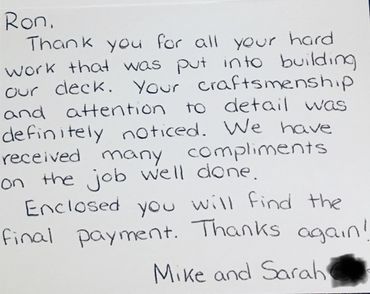 Ron,
Thank you for all your hard
work that was put into building
our deck. Your craftsmenship
and attention to detail was
definitely noticed. We have
received many compliments
on the job well done.
Enclosed you will find the
final payment. Thanks again!
Mike and Sarah